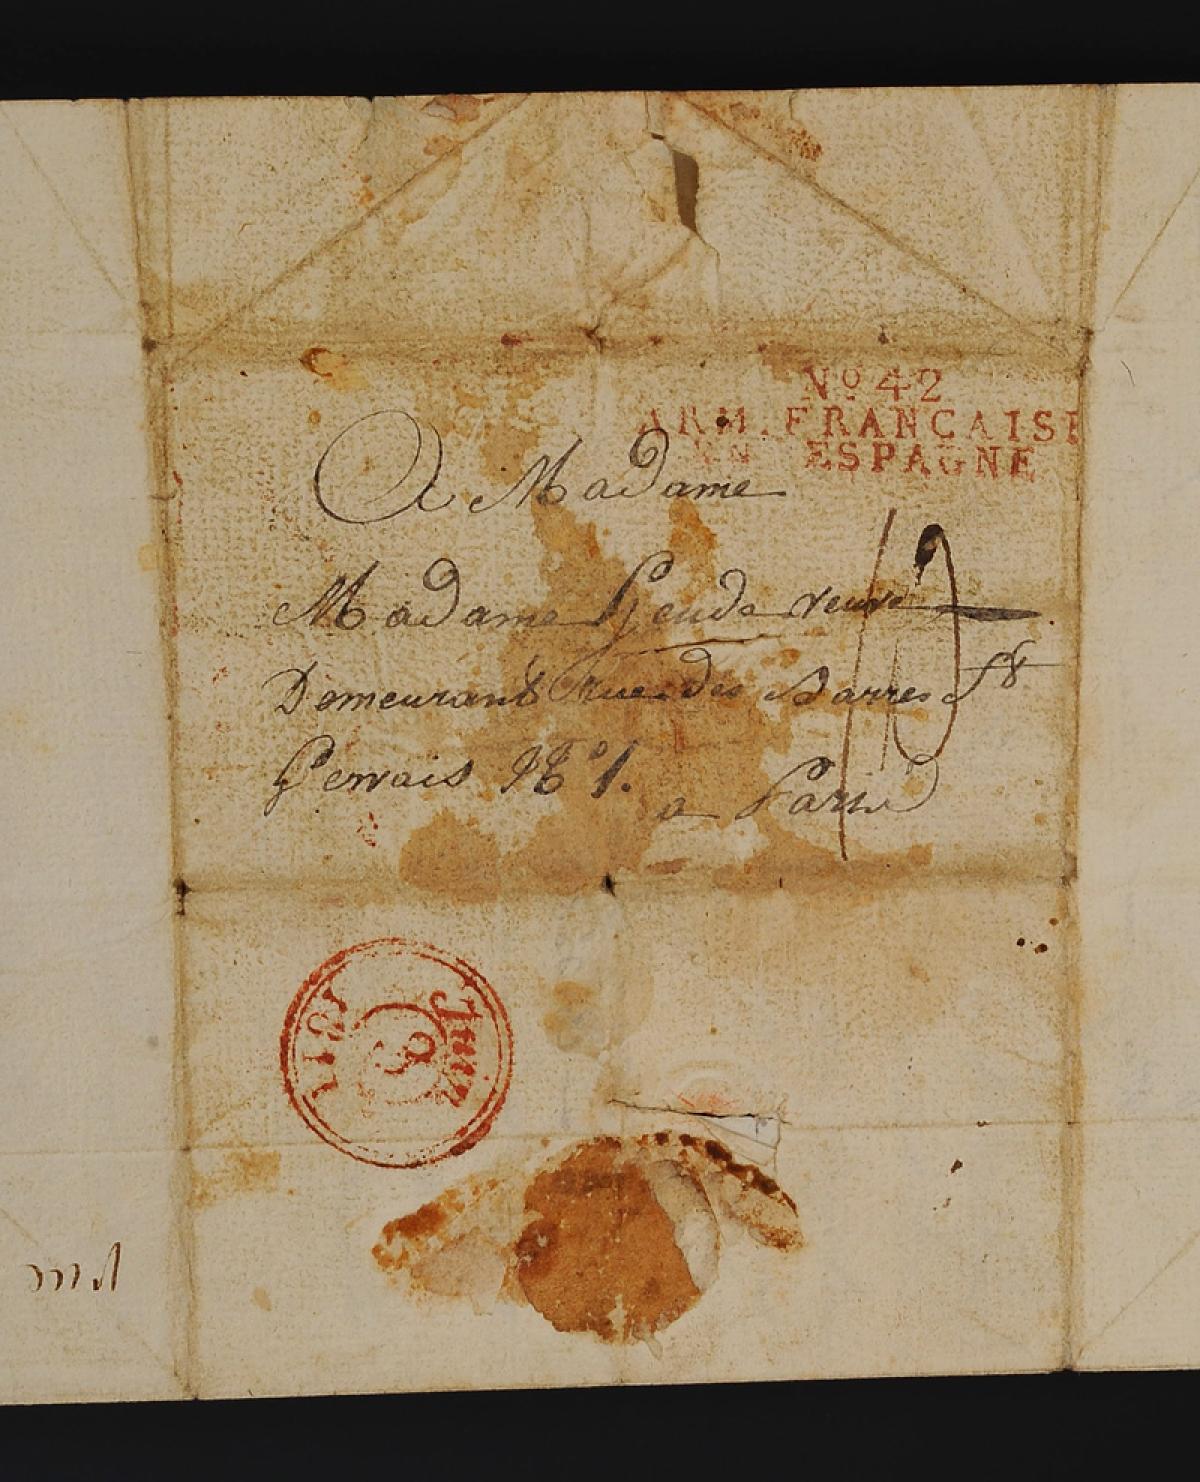 No 42
ARM. FRANCAISE
EN ESPAGNE
A Madame
Madame veuve
Demeurant Rue des Barres St
Gervais No 1.
a Paris
Juin
1811